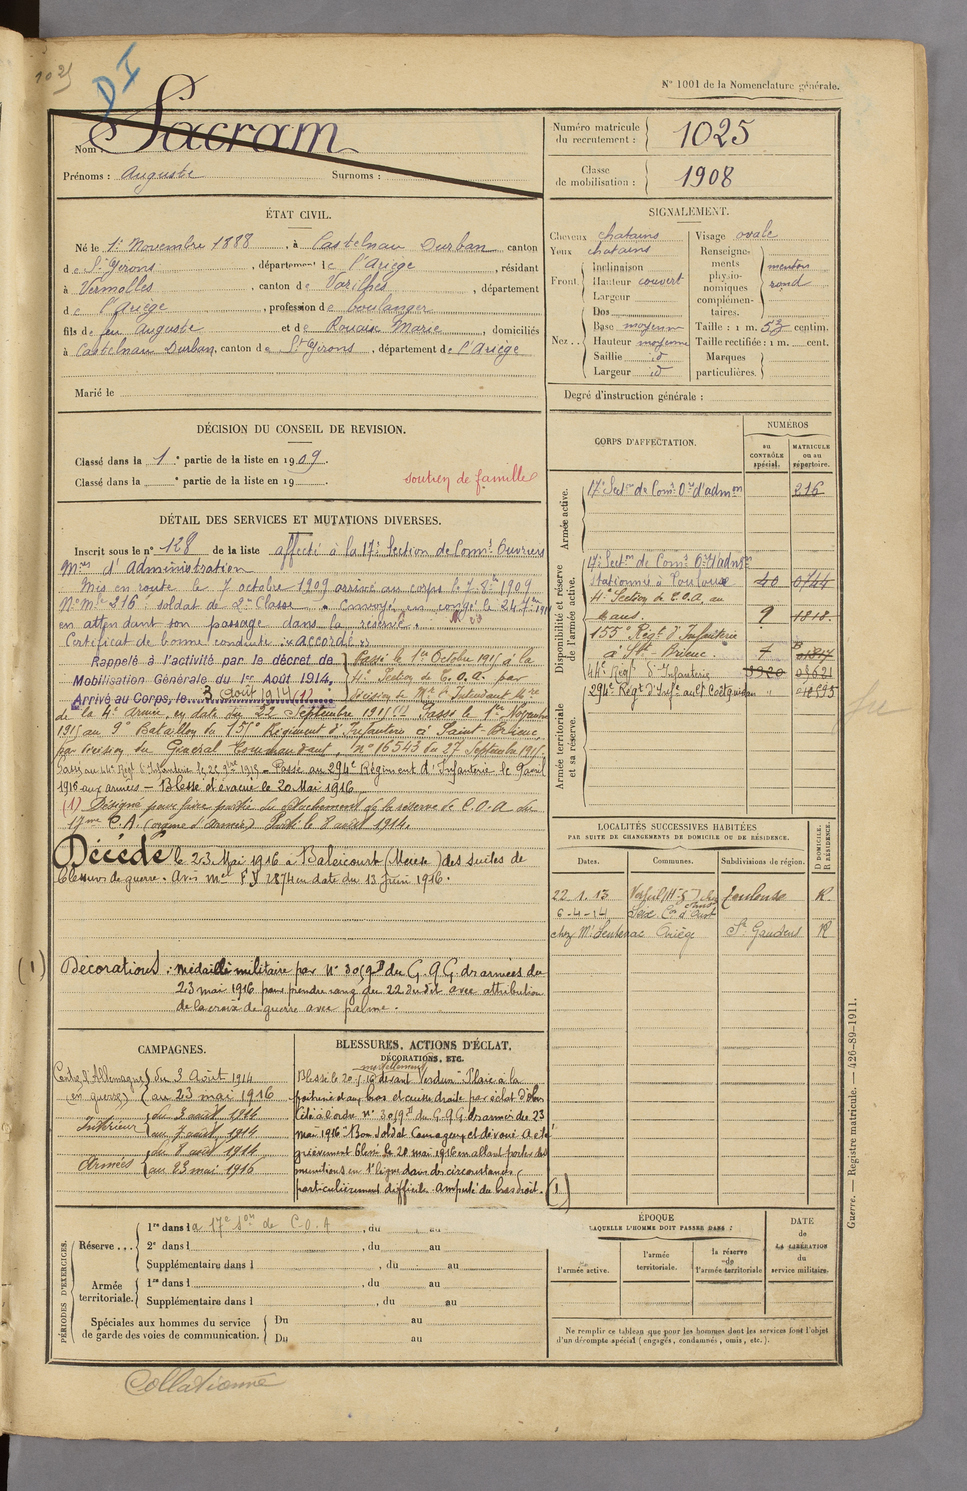 1025
DI
N° 1001 de la Nomenclature générale.
Nom : Sacram
Prénoms : Auguste Surnoms :
Numéro matricule du recrutement : 1025
Classe de mobilisation : 1908
ÉTAT CIVIL.
Né le 1er Novembre 1888, à Castelnau Durban canton
de St Girons, département de l'Ariège, résidant
à Vernolles, canton de Varilhes, département
de l'Ariège, profession de boulanger
fils de feu Auguste et de Rouaix Marie, domiciliés
à Castelnau Durban, canton de St Girons, département de l'Ariège
Marié le
SIGNALEMENT.
Cheveux chatains
Yeux chatains
Front. Inclinaison
Hauteur couvert
Largeur
Nez.. Dos
Base moyenne
Hauteur moyenne
Saillie id
Largeur id
Visage ovale
Renseignements physionomiques complémentaires. menton rond
Taille : 1 m. 53 centim.
Taille rectifiée : 1 m. cent.
Marques particulières.
Degré d'instruction générale :
DÉCISION DU CONSEIL DE REVISION.
Classé dans la 1e partie de la liste en 1909.
Classé dans la e partie de la liste en 19 .
soutien de famille
DÉTAIL DES SERVICES ET MUTATIONS DIVERSES.
Inscrit sous le n° 128 de la liste affecté à la 17e Section de Comis Ouvriers
Mres d'administration
Mis en route le 7 octobre 1909 arrivé au corps le 7 8bre 1909
N° Mle 216 : soldat de 2e Classe. Envoyé en congé le 24 7bre 1911
en attendant son passage dans la réserve.
Certificat de bonne conduite "accordé"
Rappelé à l'activité par le décret de
Mobilisation Générale du 1er Août 1914,
Arrivé au Corps, le 3 août 1914 (1)
Passé le 1er Octobre 1915 à la
4e Section de C.O.A. par
décision de Mr l'Intendant Mre
de la 4e Armée, en date du 22 Septembre 1915. Passé le 1er Novembre
1915 au 9e Bataillon du 155e Régiment d'Infanterie à Saint-Brieuc,
par décision du Général Commandant, n° 16543 du 27 Septembre 1915.
Passé au 44e Rég. d'Infanterie le 1915. Passé au 294e Régiment d'Infanterie le 9 avril
1916 aux armées - Blessé évacué le 20 Mai 1916
(1) Désigné pour faire partie du détachement de la réserve de C.O.A. du
17me C.A. Parti le 8 août 1914.
Décédé le 23 Mai 1916 à Baleicourt (Meuse) des suites de
blessures de guerre. Avis mel FY 2874 en date du 13 Juin 1916.
(1) Décorations : médaille militaire par n° 3019 D du G.Q.G. des armées du
23 mai 1916 pour prendre rang du 22 dudit avec attribution
de la croix de guerre avec palme.
CORPS D'AFFECTATION.
NUMÉROS
au CONTRÔLE spécial.
MATRICULE ou au répertoire.
Armée active.
17e Sectn de Comis Ors d'admon 216
Disponibilité et réserve de l'armée active.
17e Sectn de Comis Ors d'admon
Stationnée à Toulouse 40 0744
4e Section de C.O.A. au
Mans. 9 1818
155e Régt d'Infanterie
à St-Brieuc. 7
44e Régt d'Infanterie
294e Régt d'Infie au Cp Coëtquidan
Armée territoriale et sa réserve.
LOCALITÉS SUCCESSIVES HABITÉES
PAR SUITE DE CHANGEMENTS DE DOMICILE OU DE RÉSIDENCE.
Dates. Communes. Subdivisions de région. D DOMICILE. R RÉSIDENCE.
22.1.13 Verfeil Toulouse R.
6-4-14 Seix Con d'Oust
chez Mr Sentenac Ariège St Gaudens R
CAMPAGNES.
Contre l'Allemagne du 3 Août 1914
(en guerre) au 23 mai 1916
Intérieur du 3 août 1914
au 7 août 1914
Armées du 8 août 1914
au 23 mai 1916
BLESSURES, ACTIONS D'ÉCLAT,
DÉCORATIONS, ETC.
mortellement
Blessé le 20-5-16 devant Verdun "Plaie à la
poitrine, d'un bras et cuisse droite par éclat d'obus
Cité à l'ordre n° 3019 D du G.Q.G. des armées du 23
mai 1916 "Bon soldat Courageux et dévoué. A été
grièvement blessé le 20 mai 1916 en allant porter des
munitions en 1e ligne dans des circonstances
particulièrement difficiles. Amputé du bras droit. (1)
PÉRIODES D'EXERCICES.
Réserve... 1re dans la 17e Son de C.O.A, du au
2e dans l , du au
Supplémentaire dans l , du au
Armée territoriale. 1re dans l , du au
Supplémentaire dans l , du au
Spéciales aux hommes du service de garde des voies de communication. Du au
Du au
ÉPOQUE
À LAQUELLE L'HOMME DOIT PASSER DANS :
l'armée active.
l'armée territoriale.
la réserve de l'armée territoriale
DATE de LA LIBÉRATION du service militaire.
Ne remplir ce tableau que pour les hommes dont les services font l'objet
d'un décompte spécial (engagés, condamnés, omis, etc.).
Guerre. — Registre matricule. — 426-89-1911.
Collationné